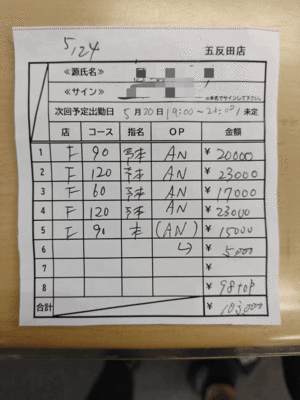 5/24
五反田店
≪源氏名≫
≪サイン≫
※本名でサインして下さい。
次回予定出勤日 5月30日 19:00〜 / 未定
店 コース 指名 OP 金額
1 F 90 本 AN ¥20000
2 F 120 本 AN ¥23000
3 F 60 本 AN ¥17000
4 F 120 本 AN ¥23000
5 F 90 本 (AN) ¥15000
6 ↳ ¥5,000
7 ¥
8 ¥98
合計 ¥103,000